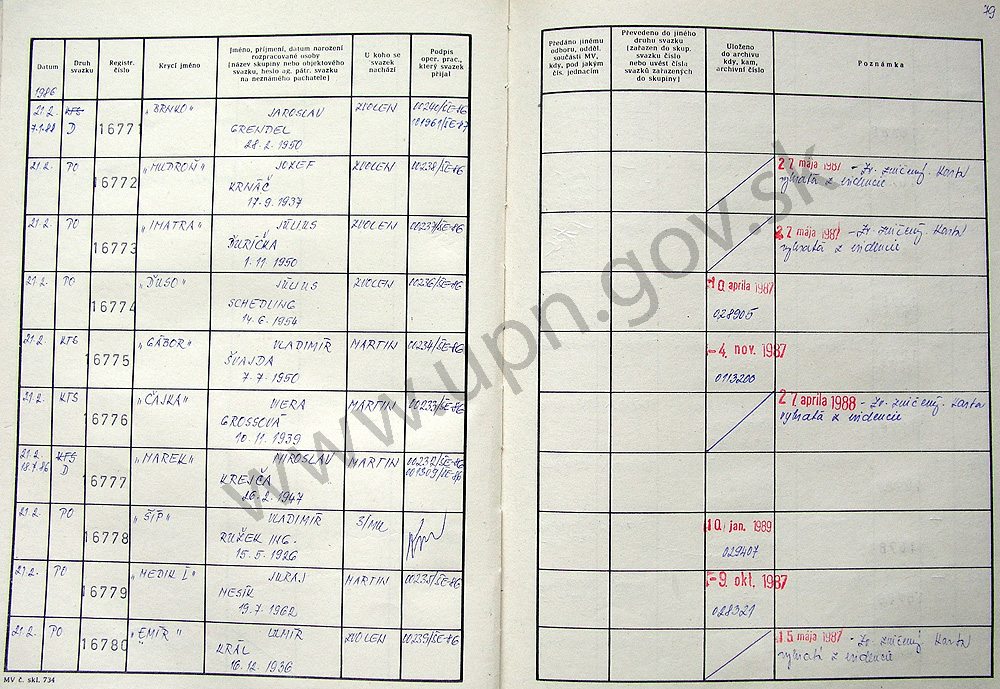 79
Datum
Druh svazku
Registr. číslo
Krycí jméno
Jméno, příjmení, datum narození
rozpracované osoby
(název skupiny nebo objektového
svazku, heslo ag. pátr. svazku
na neznámého pachatele)
U koho se
svazek
nachází
Podpis
oper. prac.,
který svazek
přijal
Předáno jinému
odboru, odděl.
součásti MV,
kdy, pod jakým
čís. jednacím
Převedeno do jiného
druhu svazku
(zařazen do skup.
svazku číslo
nebo uvést čísla
svazků zařazených
do skupiny)
Uloženo
do archivu
kdy, kam,
archivní číslo
Poznámka
1986
21.2. KTS 16771 "BRNKO" JAROSLAV ZVOLEN 00240/ŠE-86
7.1.88 D GRENDEL 001961/ŠE-87
28.2.1950
21.2. PO 16772 "MUDROŇ" JOZEF ZVOLEN 00238/ŠE-86 27 mája 1987 - Zv. zničený. Karta
KRNÁČ vyňatá z evidencie
17.9.1937
21.2. PO 16773 "IMATRA" JÚLIUS ZVOLEN 00237/ŠE-86 22 mája 1987 - Zv. zničený. Karta
ĎURIČKA vyňatá z evidencie
1.11.1950
21.2. PO 16774 "ĎUSO" JÚLIUS ZVOLEN 00236/ŠE-86 10. apríla 1987
SCHEDLING 028905
14.6.1954
21.2. KTS 16775 "GÁBOR" VLADIMÍR MARTIN 00234/ŠE-86 -4. nov. 1987
ŠVAJDA 0113200
7.7.1950
21.2. KTS 16776 "ČAJKA" VIERA MARTIN 00233/ŠE-86 27. apríla 1988 - Zv. zničený. Karta
GROSSOVÁ vyňatá z evidencie
10.11.1939
21.2. KTS 16777 "MAREK" MIROSLAV MARTIN 00232/ŠE-86
18.7.86 D KREJČA
26.2.1947
21.2. PO 16778 "ŠÍP" VLADIMÍR 10. jan. 1989
RUŽEK ING. 029407
15.5.1926
21.2. PO 16779 "MEDIK I" JURAJ MARTIN 00235/ŠE-86 -9. okt. 1987
MESÍK 028321
19.7.1962
21.2. PO 16780 "EMIR" ZVOLEN 00239/ŠE-86 15 mája 1987 - Zv. zničený. Karta
KRÁL vyňatá z evidencie
16.12.1936
MV č. skl. 734
www.upn.gov.sk